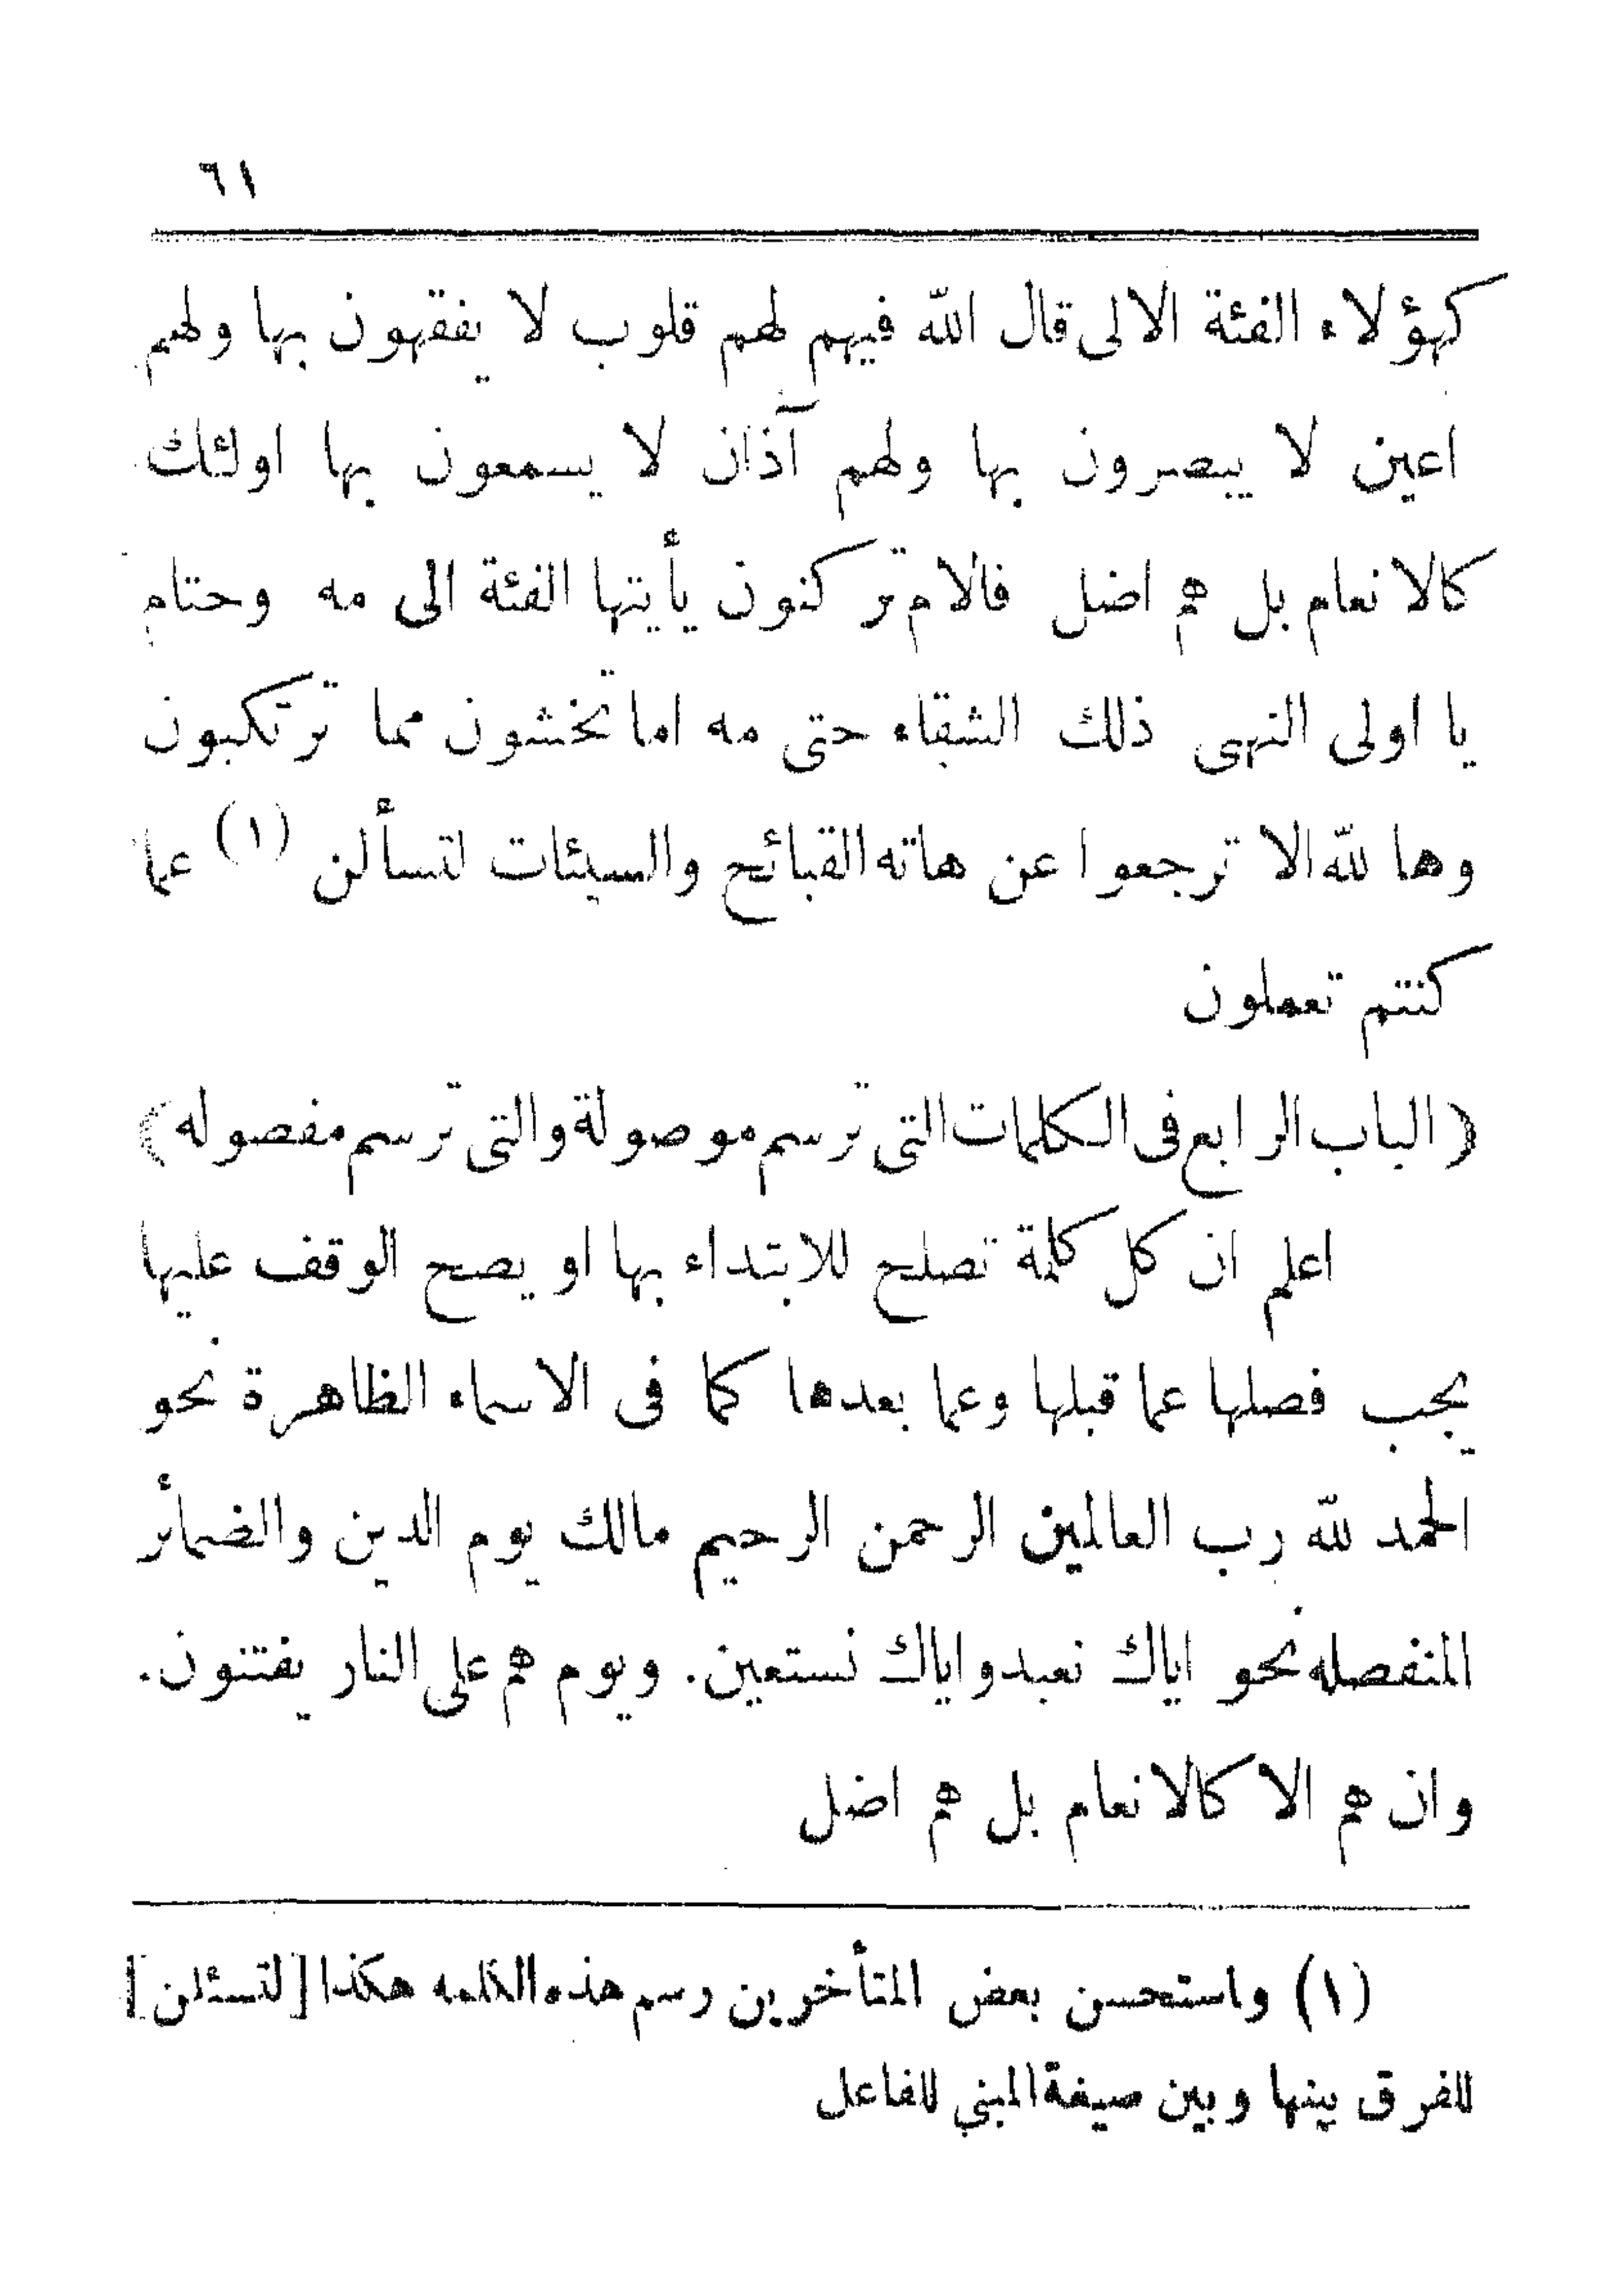 ٦١
كهؤلاء الفئة الالى قال الله فيهم لهم قلوب لا يفقهون بها ولهم
اعين لا يبصرون بها ولهم آذان لا يسمعون بها اولئك
كالانعام بل هم اضل فالام تركنون يأيتها الفئة الى مه وحتام
يا اولى النهى ذلك الشقاء حتى مه اما تخشون مما ترتكبون
وها لله الا ترجعوا عن هاته القبائح والسيئات لتسألن (١) عما
كنتم تعملون
(الباب الرابع فى الكلمات التى ترسم موصولة والتى ترسم مفصوله)
اعلم ان كل كلمة تصلح للابتداء بها او يصح الوقف عليها
يجب فصلها عما قبلها وعما بعدها كما فى الاسماء الظاهرة نحو
الحمد لله رب العالمين الرحمن الرحيم مالك يوم الدين والضمائر
المنفصله نحو اياك نعبد واياك نستعين. ويوم هم على النار يفتنون.
وان هم الا كالانعام بل هم اضل
(١) واستحسن بعض المتأخرين رسم هذه الكلمه هكذا [لتسئلن]
للفرق بينها وبين صيغة المبني للفاعل